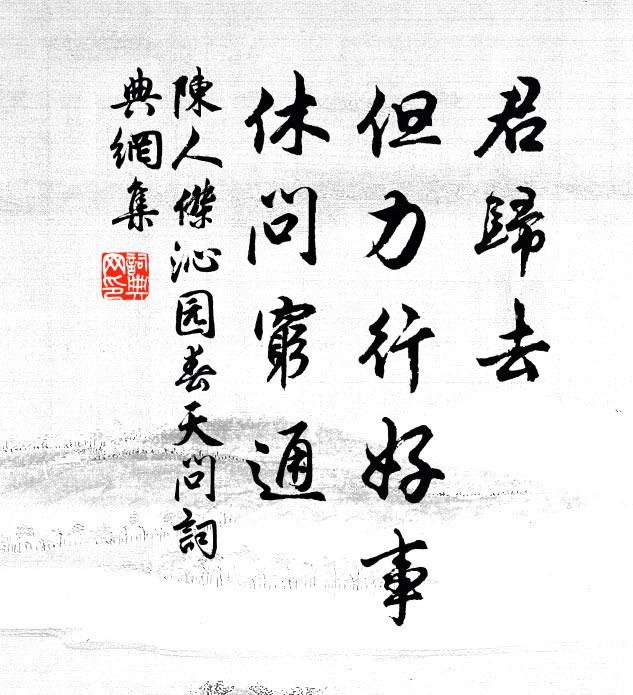 君歸去
但力行好事
休問窮通
陳人傑沁园春天问詞
典網集
詞典
网印